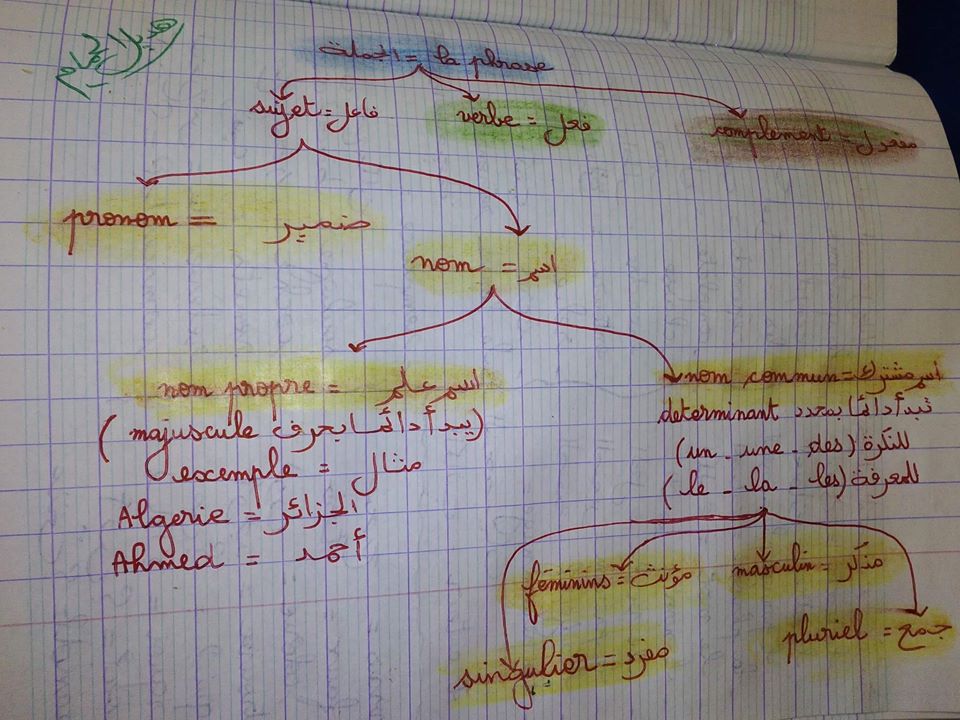 الجملة = la phrase
sujet = فاعل
verbe = فعل
complement = مفعول
pronom = ضمير
nom = اسم
nom propre = اسم علم
(يبدأ دائما بحرف majuscule)
excemple = مثال
Algerie = الجزائر
Ahmed = أحمد
nom commun = اسم مشترك
تبدأ دائما بمحدد determinant
للنكرة (un - une - des)
للمعرفة (le - la - les)
féminins = مؤنث
masculin = مذكر
singulier = مفرد
pluriel = جمع